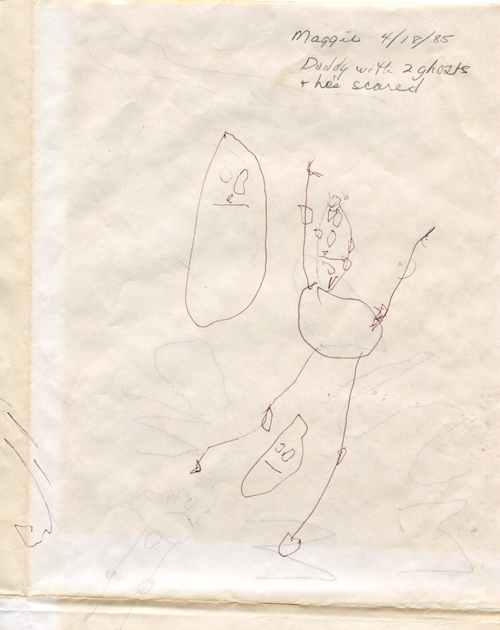 Maggie 4/18/85
Daddy with 2 ghosts
+ he's scared